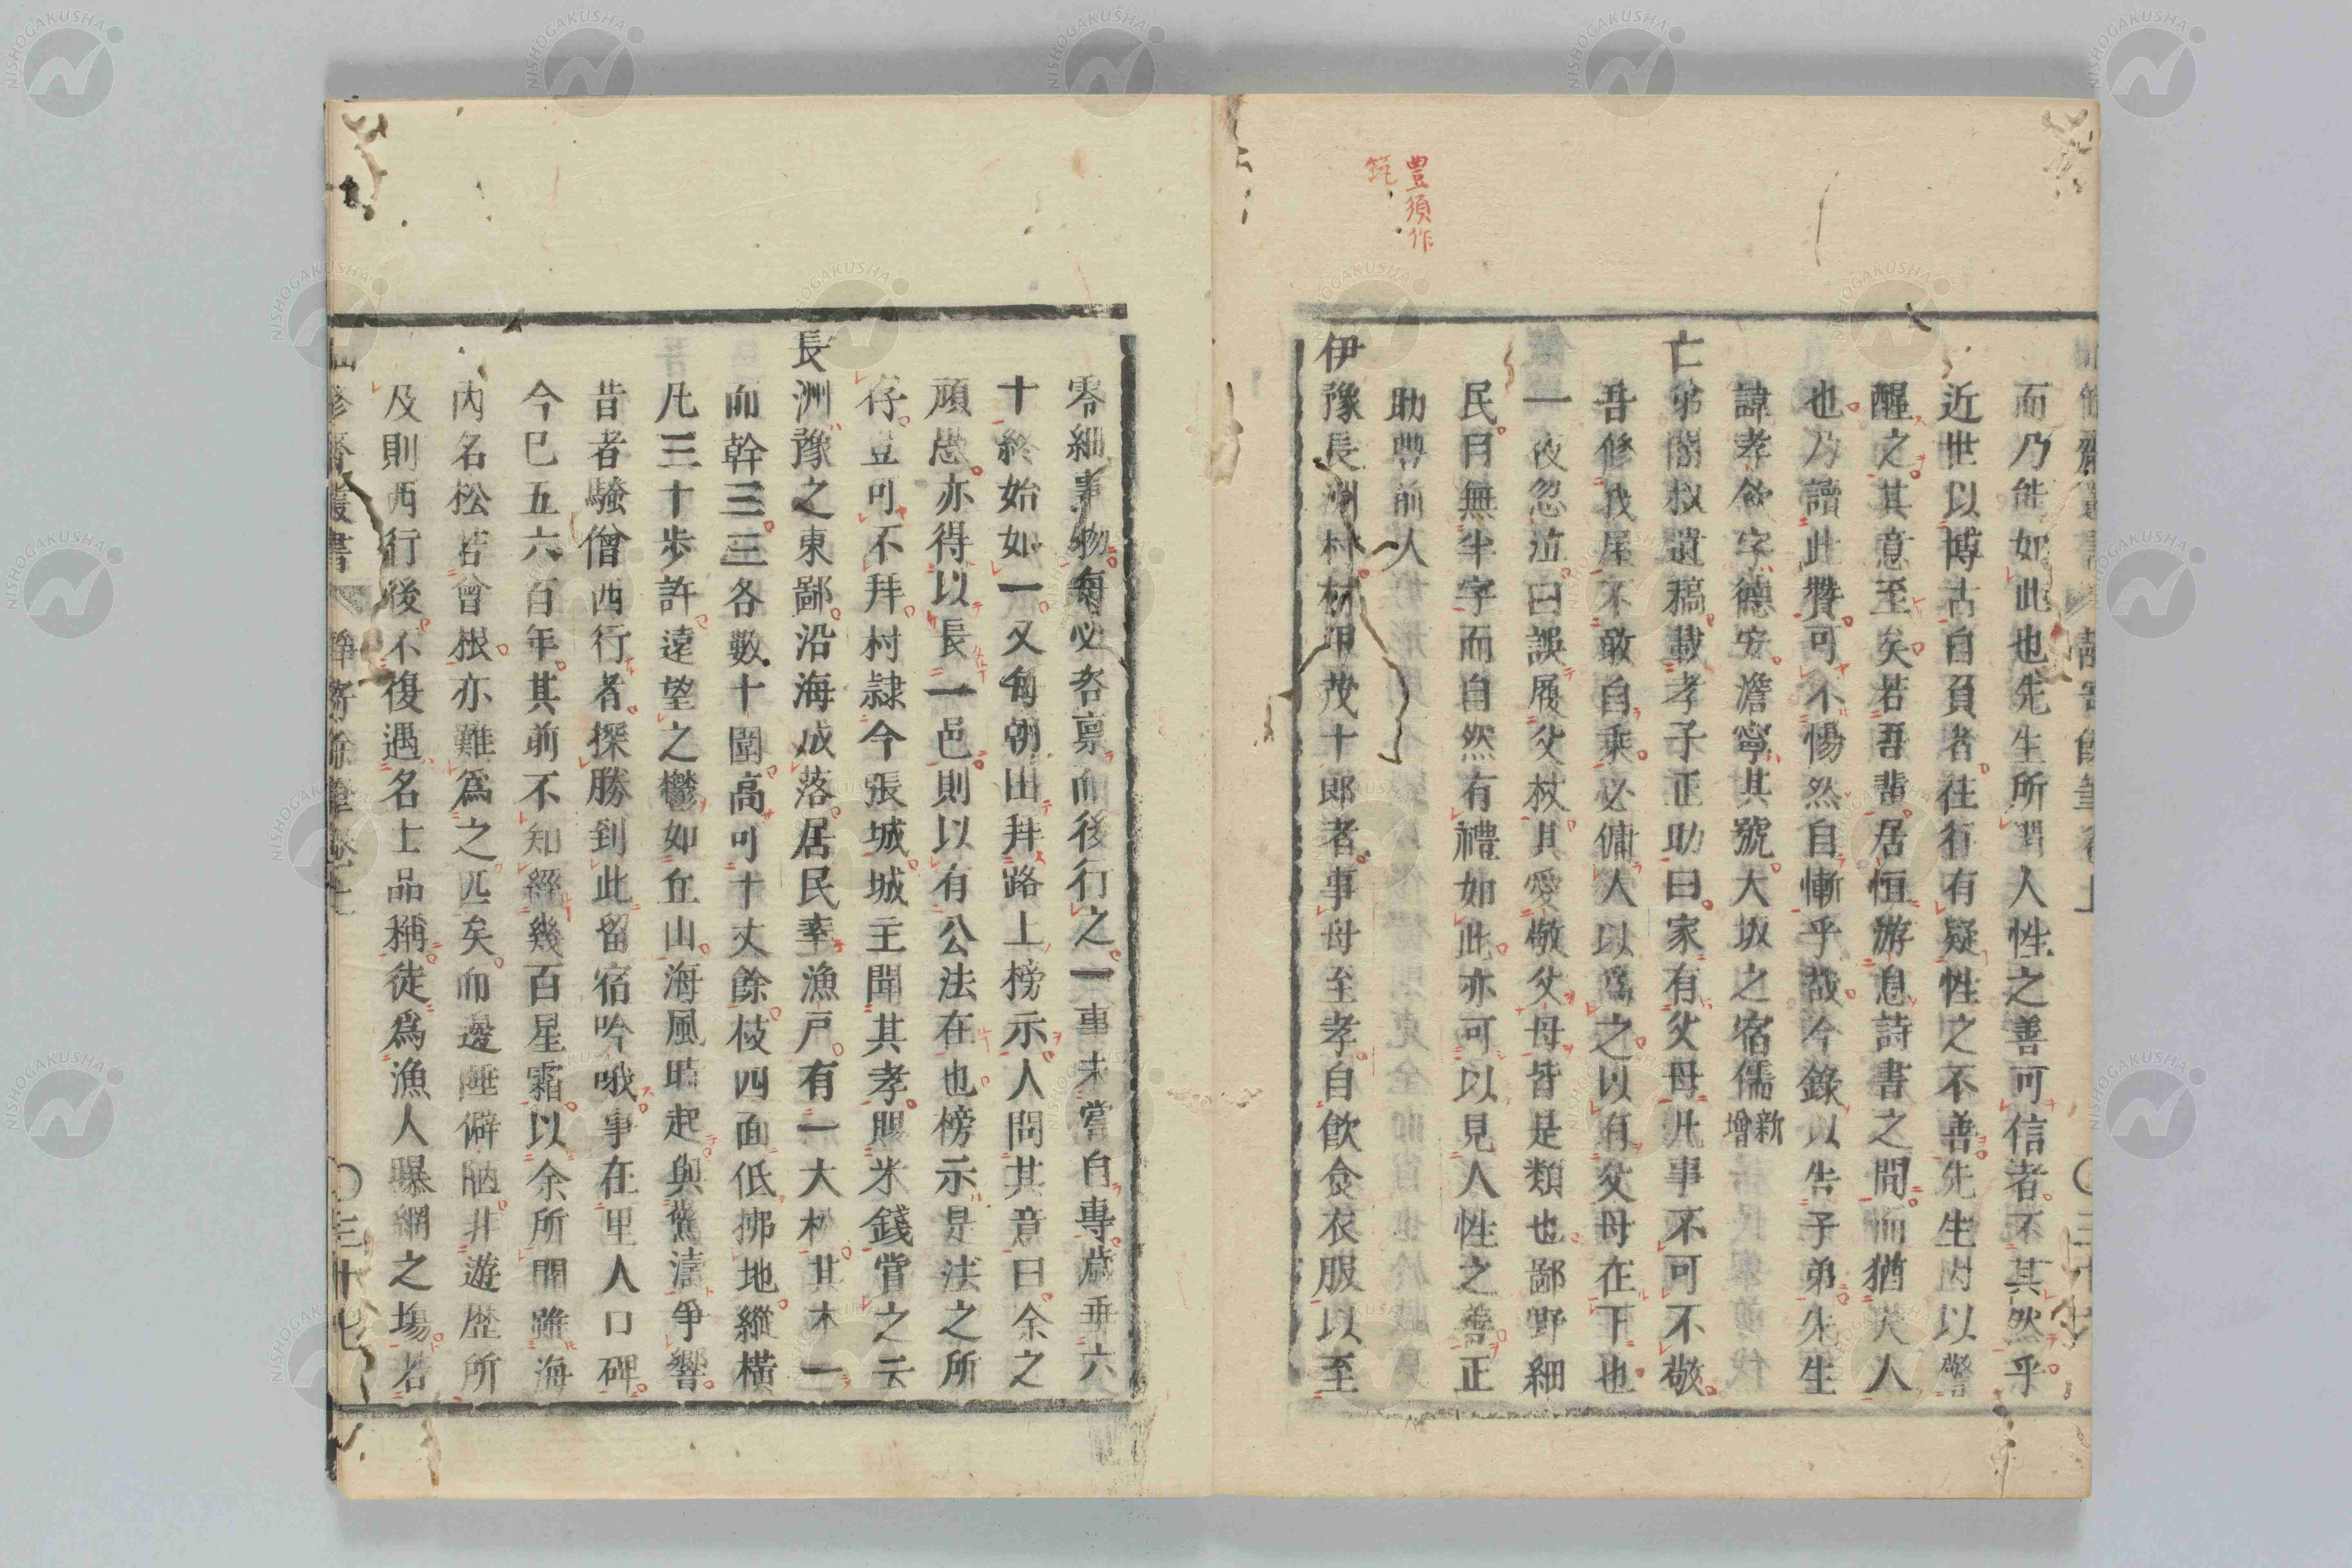 豊須作
筑
而乃能如此也先生所謂人性之善可信者不其然乎
近世以博古自負者往有有疑性之不善先生因以警
醒之其意至矣若吾輩居恒游息詩書之間而猶人
也乃讀此贊可不惕然自慚乎哉今錄以告子弟先生
諱孝欽字德安澹寧其號大坂之宿儒新增
亡弟誾叔遺稿載孝子正助曰家有父母凡事不可不敬
吾修我屋不敢自乘必傭人以為之以有父母在下也
一夜忽泣曰誤履父杖其愛敬父母皆是類也鄙野細
民目無半字而自然有禮如此亦可以見人性之善正
助豊前人
伊豫長洲村茂十郎者事母至孝自飲食衣服以至
零細事物每必咨禀而後行之一事未嘗自專歲垂六
十終始如一又每朝出拜路上榜示人問其意曰余之
頑愚亦得以長一邑則以有公法在也榜示是法之所
存豈可不拜村隷今張城城主聞其孝賜米錢賞之云
長洲豫之東鄙沿海成落居民率漁戶有一大松其本一
而幹三三各數十圍高可十丈餘枝四面低拂地縱橫
凡三十步許遠望之欝如丘山海風時起與驚濤爭響
昔者騷僧西行者探勝到此留宿吟哦事在里人口碑
今已五六百年其前不知經幾百星霜以余所聞雖海
內名松若曾根亦難為之匹矣而邊陲僻陋非遊歷所
及則西行後不復遇名士品稱徒爲漁人曝網之場若
三十七